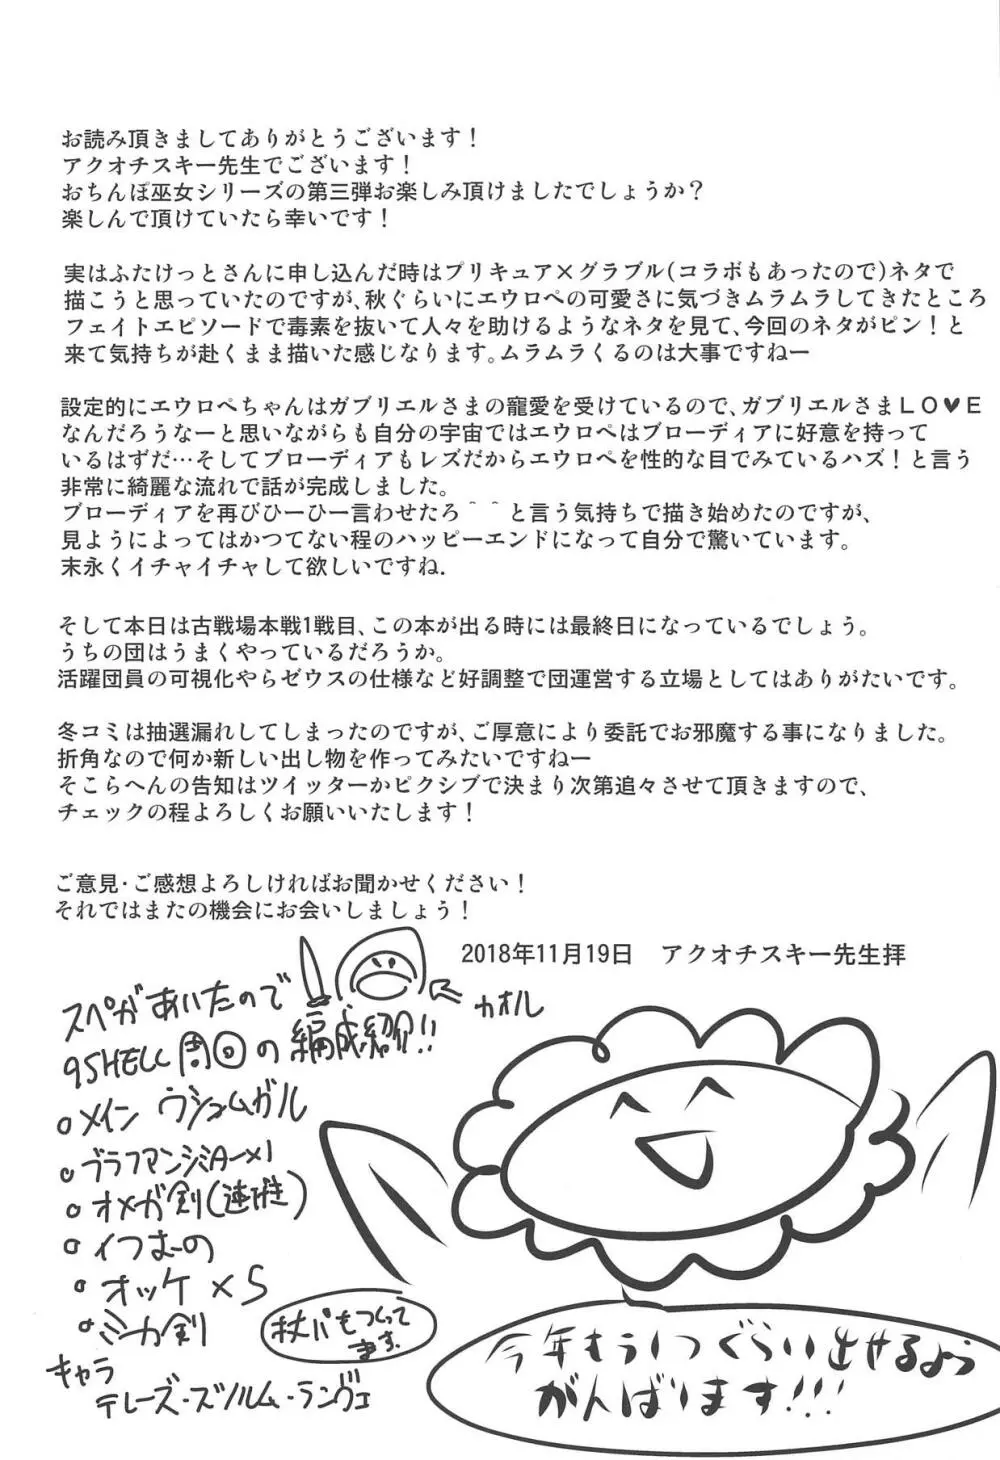 お読み頂きましてありがとうございます！
アクオチスキー先生でございます！
おちんぽ巫女シリーズの第三弾お楽しみ頂けましたでしょうか？
楽しんで頂けていたら幸いです！
実はふたけっとさんに申し込んだ時はプリキュア×グラブル(コラボもあったので)ネタで
描こうと思っていたのですが、秋ぐらいにエウロペの可愛さに気づきムラムラしてきたところ
フェイトエピソードで毒素を抜いて人々を助けるようなネタを見て、今回のネタがピン！と
来て気持ちが赴くまま描いた感じなります。ムラムラくるのは大事ですねー
設定的にエウロペちゃんはガブリエルさまの寵愛を受けているので、ガブリエルさまＬＯ♥Ｅ
なんだろうなーと思いながらも自分の宇宙ではエウロペはブローディアに好意を持って
いるはずだ…そしてブローディアもレズだからエウロペを性的な目でみているハズ！と言う
非常に綺麗な流れで話が完成しました。
ブローディアを再びひーひー言わせたろ＾＾と言う気持ちで描き始めたのですが、
見ようによってはかつてない程のハッピーエンドになって自分で驚いています。
末永くイチャイチャして欲しいですね.
そして本日は古戦場本戦1戦目、この本が出る時には最終日になっているでしょう。
うちの団はうまくやっているだろうか。
活躍団員の可視化やらゼウスの仕様など好調整で団運営する立場としてはありがたいです。
冬コミは抽選漏れしてしまったのですが、ご厚意により委託でお邪魔する事になりました。
折角なので何か新しい出し物を作ってみたいですねー
そこらへんの告知はツイッターかピクシブで決まり次第追々させて頂きますので、
チェックの程よろしくお願いいたします！
ご意見・ご感想よろしければお聞かせください！
それではまたの機会にお会いしましょう！
2018年11月19日　アクオチスキー先生拝
カオル
スペがあいたので
9SHELL周回の編成紹介!!
・メイン ウシュムガル
・ブラフマンシミター×1
・オメガ剣(連撃)
・イつおーの
・オッケ×5
・ミカ剣
杖パもつくって
ます.
キャラ
テレーズ・ズルム・ランヴェ
今年もう1つぐらい出せるよう
がんばります!!!